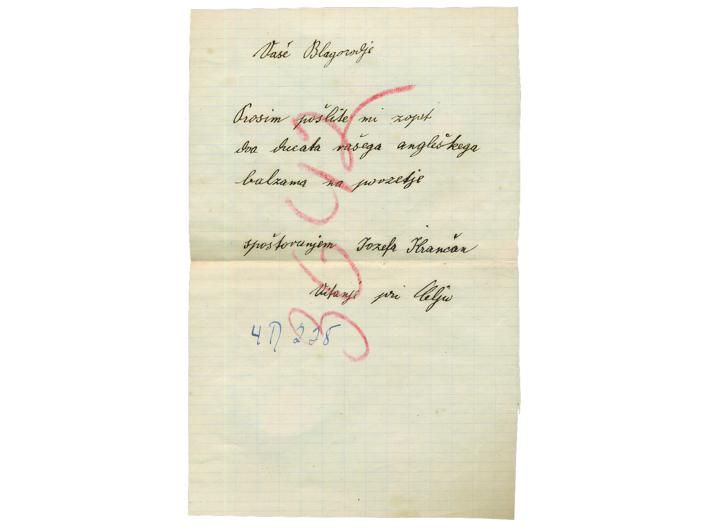 Vaše Blagorodje
Prosim pošlite mi zopet
dva ducata vašega angleškega
balzama na povzetje
spoštovanjem Jozefa Hrančan
Vitanje pri Celju
3542